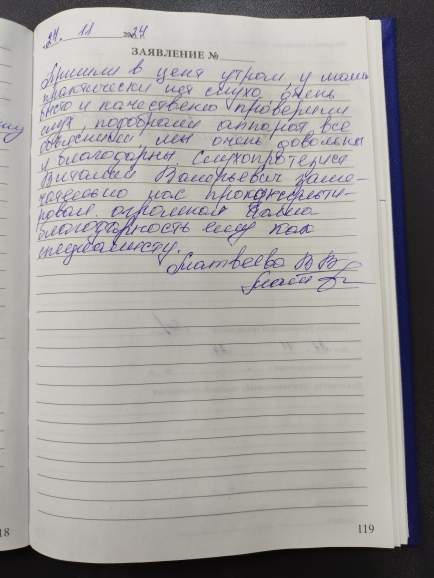 24. 11 2024
ЗАЯВЛЕНИЕ №
Пришли в цент утром, у мамы
практически нет слуха, очень
быстро и качественно проверили
слух, подобрали аппарат, все
объяснили, мы очень довольны
и благодарны. Слухопротезист
Виталий Валерьевич заме-
чательно нас проконсульти-
ровал, огромная наша
благодарность ему как
специалисту.
Матвеева В В
118
119